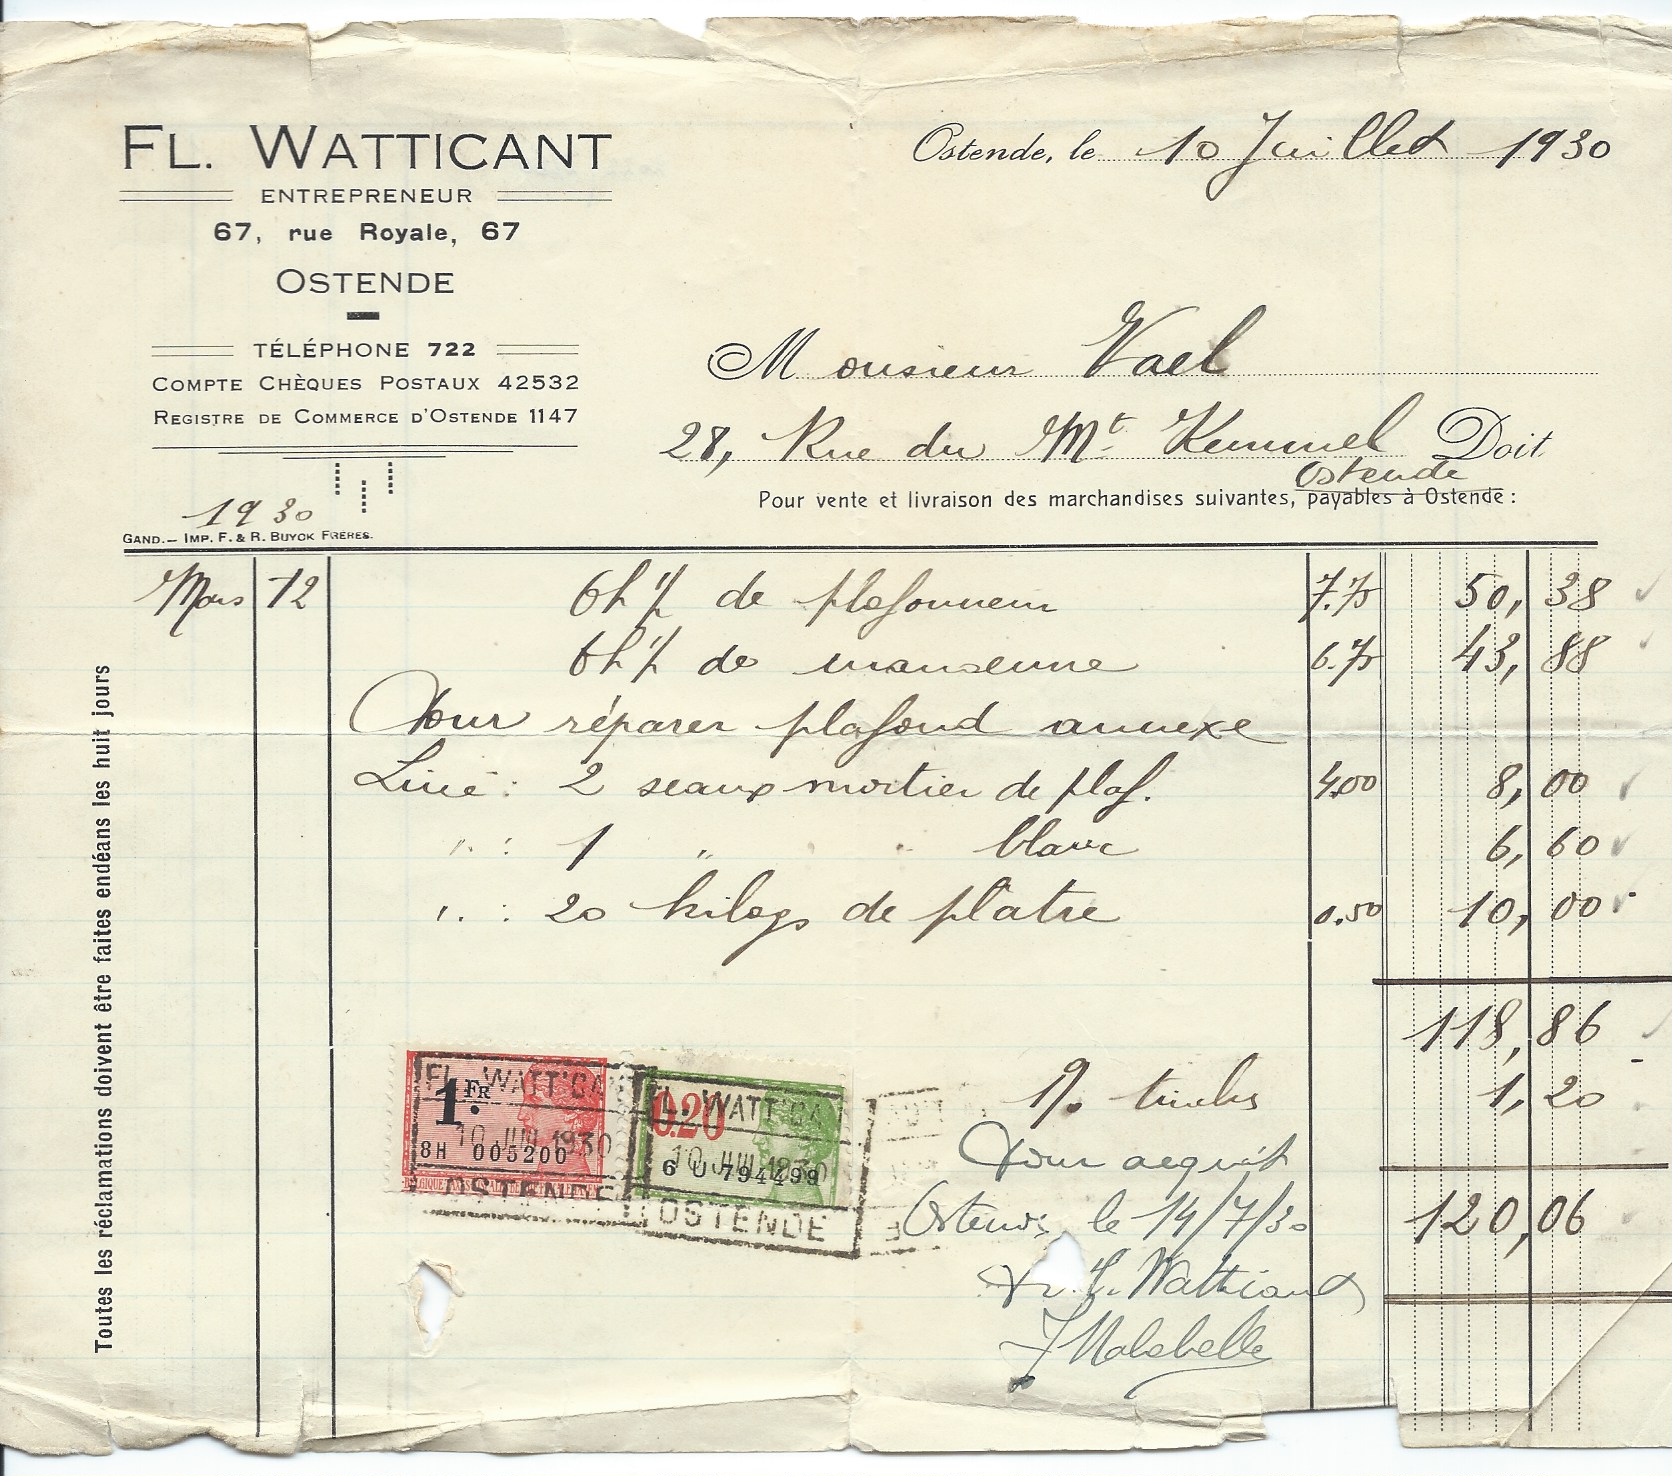 FL. WATTICANT
ENTREPRENEUR
67, rue Royale, 67
OSTENDE
TÉLÉPHONE 722
COMPTE CHÈQUES POSTAUX 42532
REGISTRE DE COMMERCE D'OSTENDE 1147
Ostende, le 10 Juillet 1930
Monsieur Vael
28, Rue du Mt Kemmel Doit
Ostende
Pour vente et livraison des marchandises suivantes, payables à Ostende :
1930
GAND.— IMP. F. & R. BUYCK FRÈRES.
Mars 12 6h ½ de plafonneur 7.75 50,38
6h ½ de manoeuvre 6.75 43,88
Pour réparer plafond annexe
Livré : 2 seaux mortier de plaf. 4.00 8,00
" : 1 " " blanc 6,60
" : 20 kilogs de platre 0.50 10,00
118,86
1% timbres 1,20
Pour acquit
Ostende le 14/7/30 120,06
Watticant
Toutes les réclamations doivent être faites endéans les huit jours
1 FR
8H 005200
FL. WATT'CA
10 JUI 1930
OSTENDE
0.20
6 U 794499
FL. WATT'CA
10 JUI 1930
OSTENDE